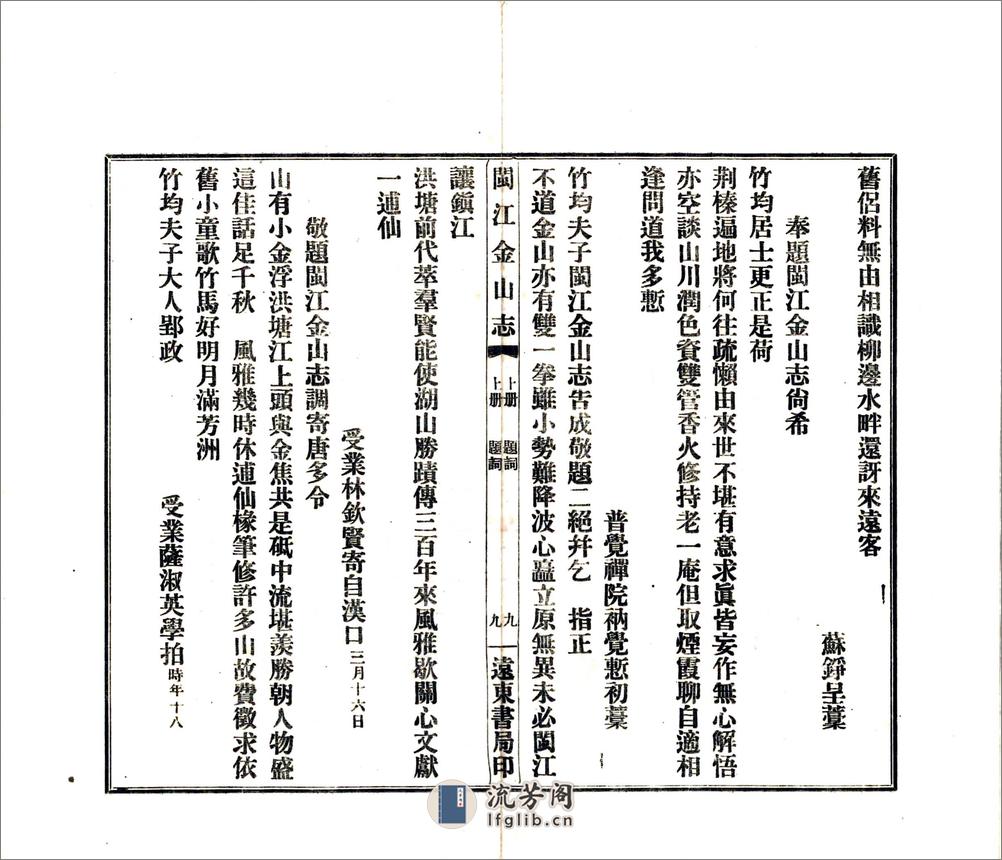 舊侶料無由相識柳邊水畔還訝來遠客
蘇錚呈藁
奉題閩江金山志尙希
竹均居士更正是荷
荆榛遍地將何往疏懶由來世不堪有意求眞皆妄作無心解悟
亦空談山川潤色資雙管香火修持老一庵但取煙霞聊自適相
逢問道我多慙
普覺禪院衲覺慙初藁
竹均夫子閩江金山志告成敬題二絕幷乞 指正
不道金山亦有雙一拳雖小勢難降波心矗立原無異未必閩江
閩江金山志 上册 題詞 九 遠東書局印
讓鎭江
洪塘前代萃羣賢能使湖山勝蹟傳三百年來風雅歇關心文獻
一逋仙
受業林欽賢寄自漢口三月十六日
敬題閩江金山志調寄唐多令
山有小金浮洪塘江上頭與金焦共是砥中流堪羨勝朝人物盛
這佳話足千秋 風雅幾時休逋仙椽筆修許多山故費徵求依
舊小童歌竹馬好明月滿芳洲
竹均夫子大人郢政
受業薩淑英學拍時年十八
流芳阁
lfglib.cn